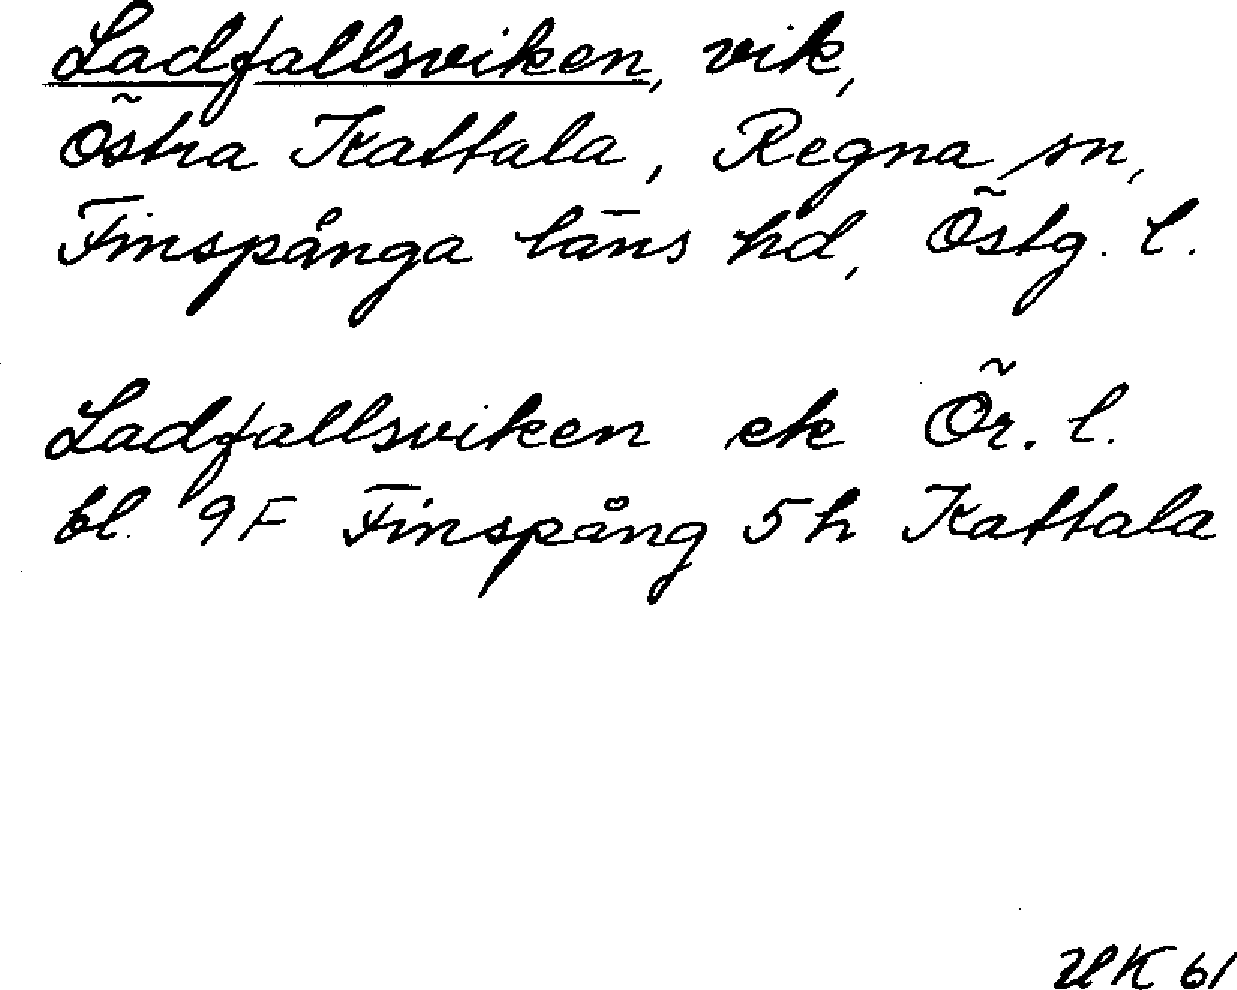 Ladfallsviken, vik,
Östra Kattala, Regna sn,
Finspånga läns hd, Östg. l.
Ladfallsviken ek Ör. l.
bl. 9F Finspång 5h Kattala
UK 61